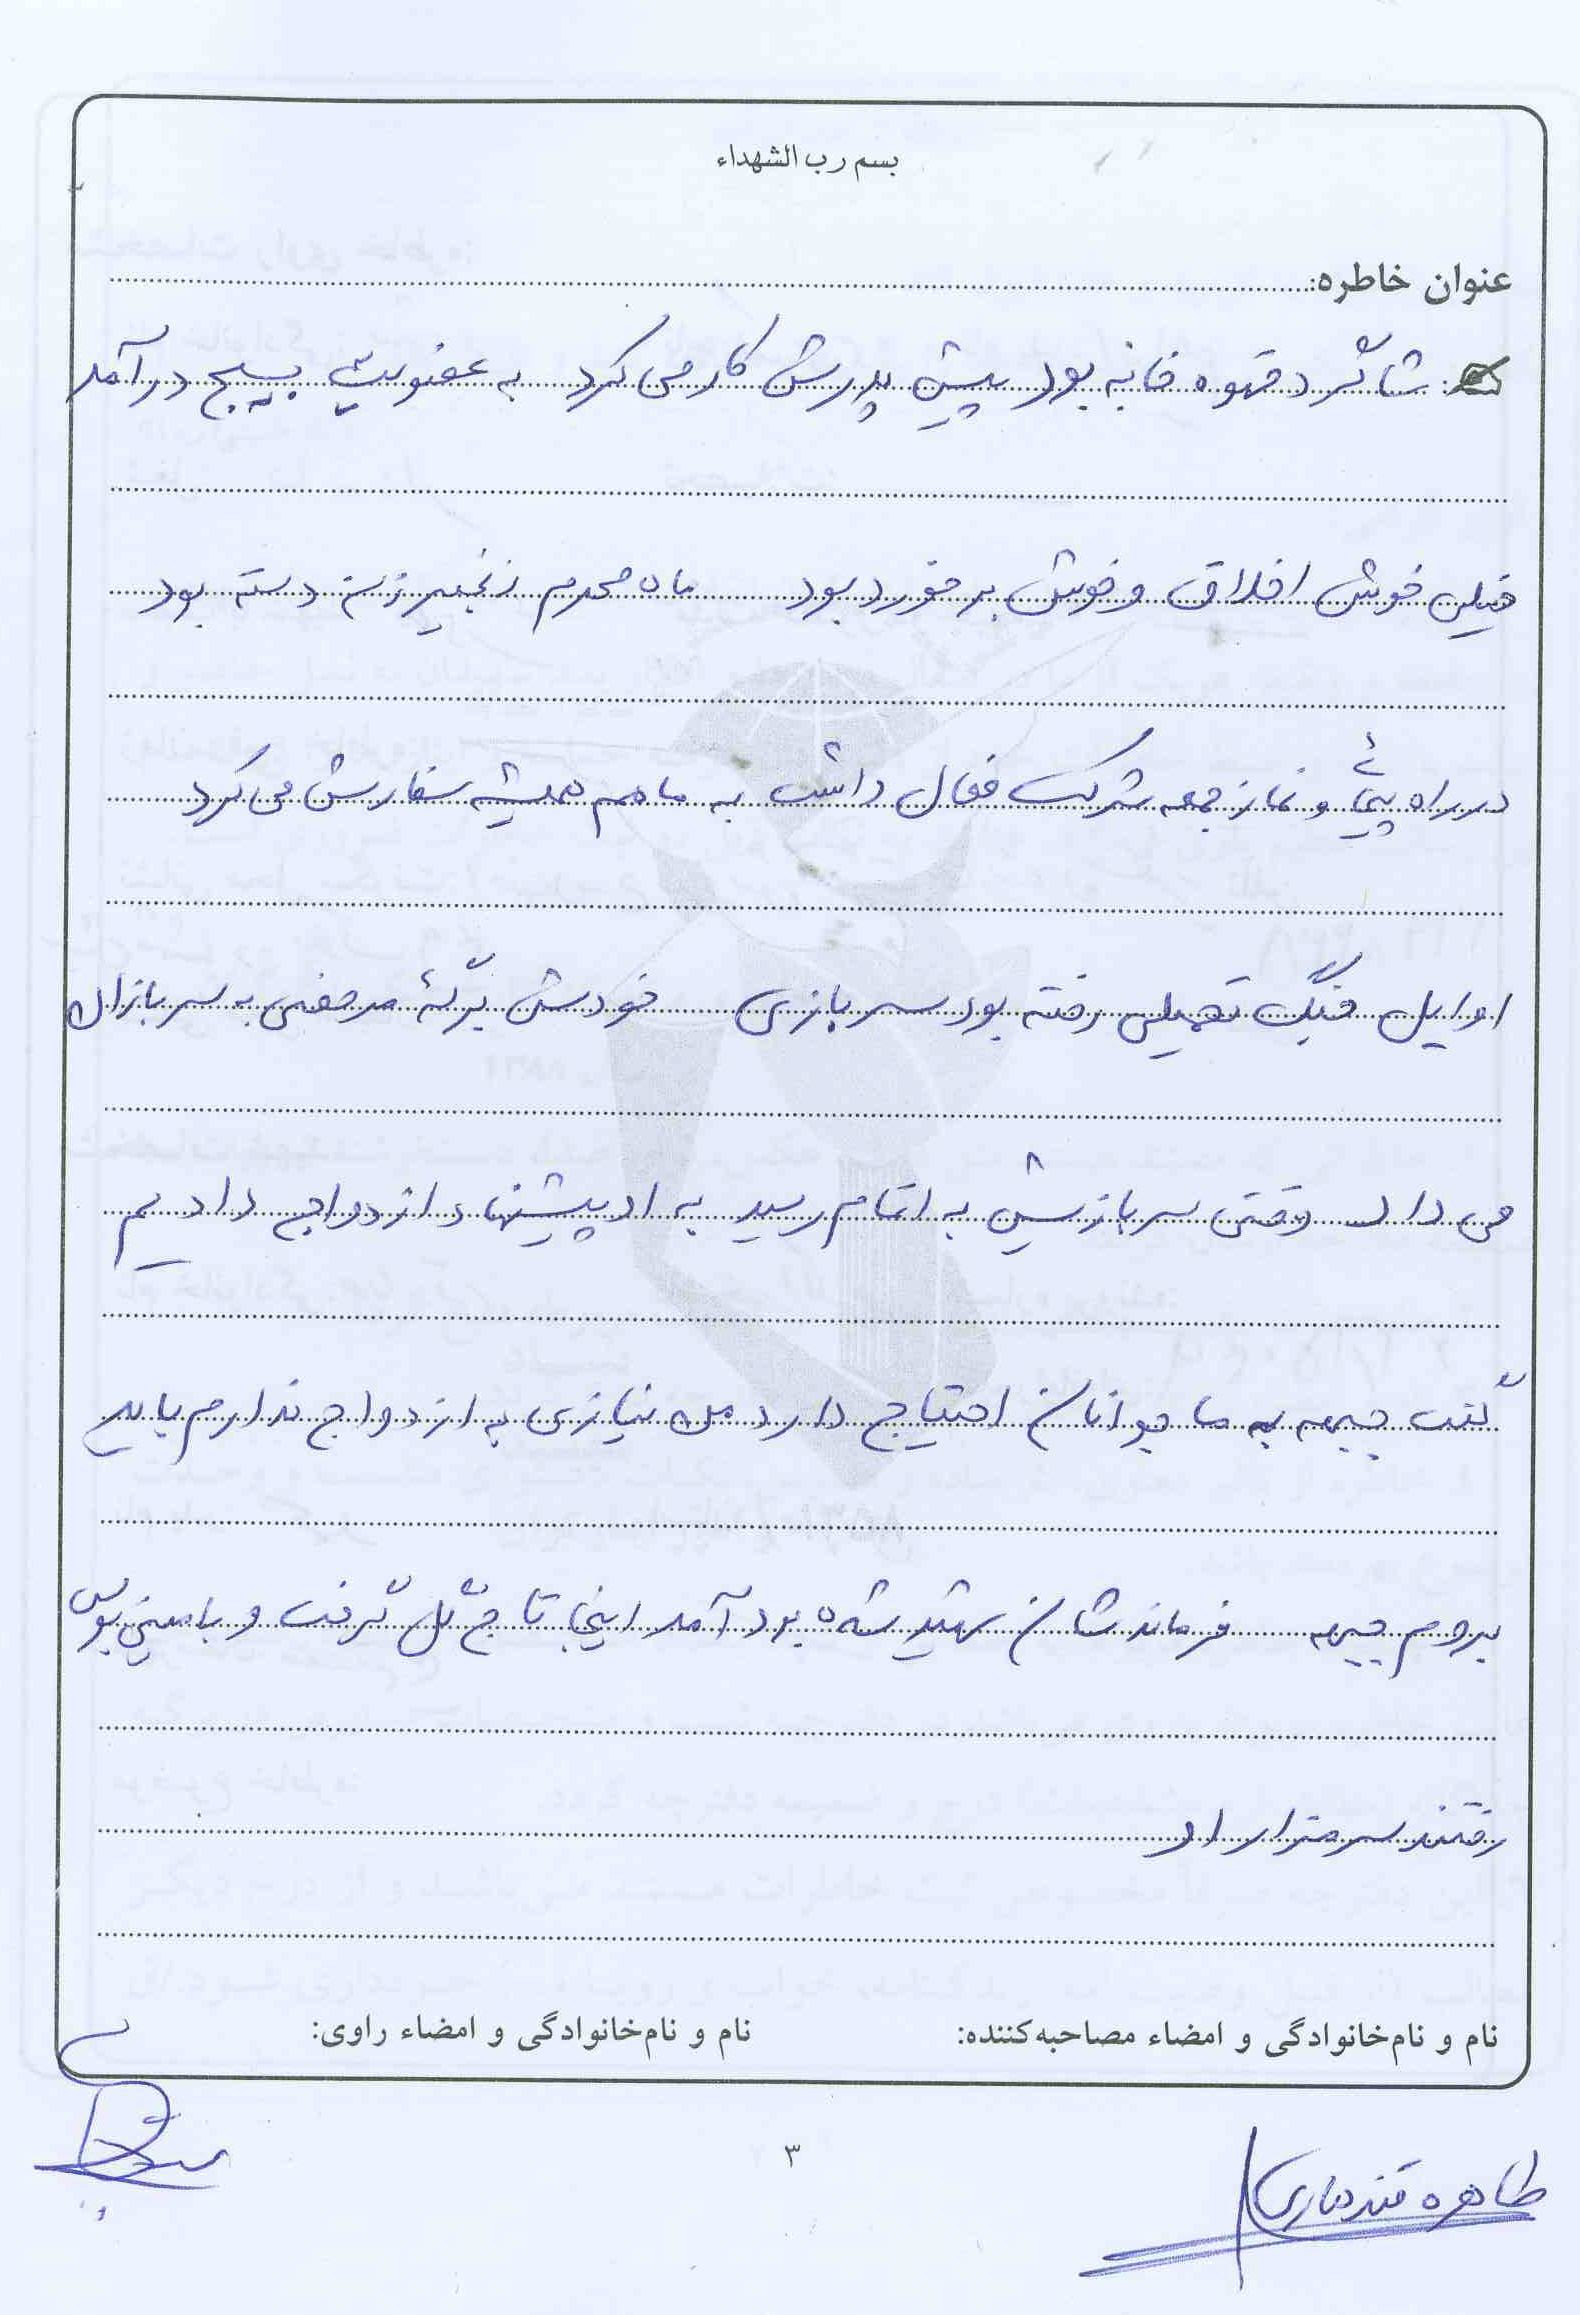 بسم رب الشهداء
عنوان خاطره:
شاگرد قهوه خانه بود پیش پدرش کار می کرد به عضویت بسیج درآمد
خیلی خوش اخلاق و خوش برخورد بود ماه محرم زنجیرزن دسته بود
در راه پیمائی و نماز جمعه شرکت فعال داشت به ما هم همیشه سفارش می کرد
اوایل جنگ تحمیلی رفته بود سربازی خودش برگهٔ مرخصی به سربازان
می داد وقتی سربازیش به اتمام رسید به او پیشنهاد ازدواج دادیم
گفت جبهه به ما جوانان احتیاج دارد من نیازی به ازدواج ندارم باید
بروم جبهه فرماندشان شهید شده بود آمد اینجا تاج گل گرفت و با مینی بوس
رفتند سر مزار او
نام و نام‌خانوادگی و امضاء مصاحبه‌کننده:
نام و نام‌خانوادگی و امضاء راوی:
۳
طاهره قندهاری